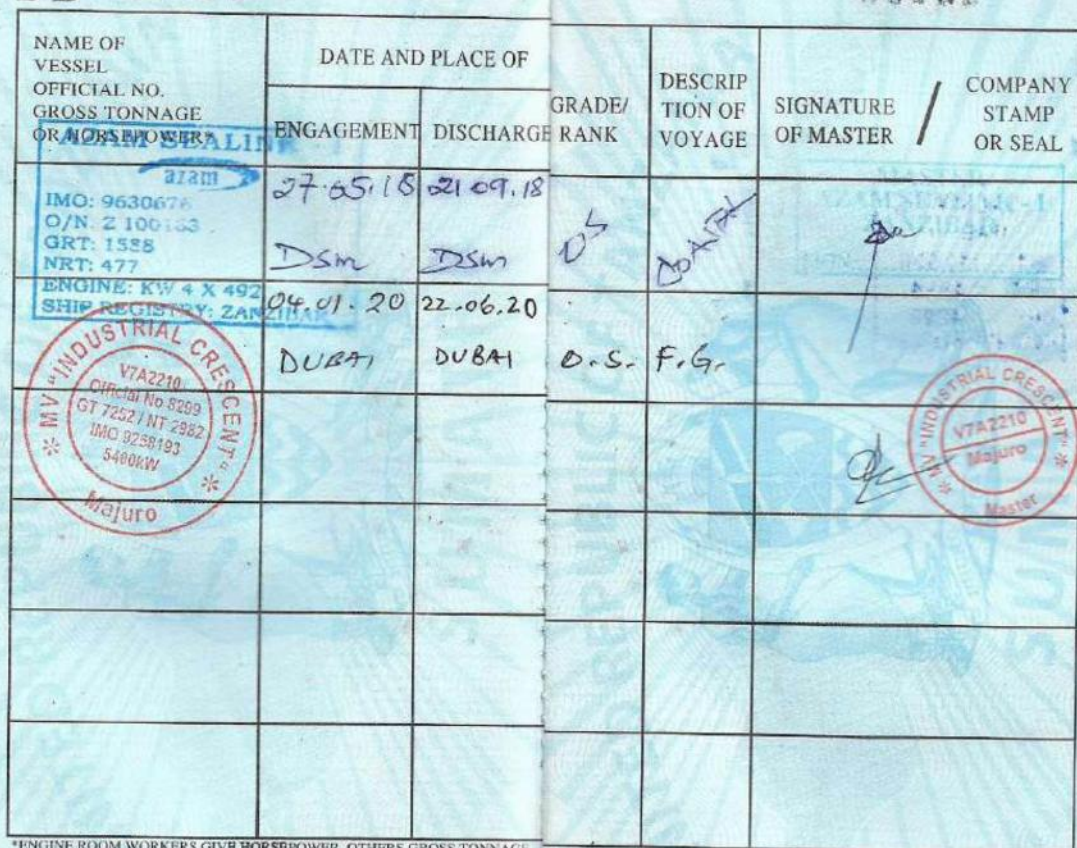 NAME OF
VESSEL
OFFICIAL NO.
GROSS TONNAGE
OR HORSEPOWER*
DATE AND PLACE OF
ENGAGEMENT
DISCHARGE
GRADE/
RANK
DESCRIP
TION OF
VOYAGE
SIGNATURE
OF MASTER
/
COMPANY
STAMP
OR SEAL
AZAM SEALINK
azam
IMO: 963067
O/N. Z 100
GRT: 1588
NRT: 477
ENGINE: KW 4 X 492
SHIP REGISTRY: ZANZIBAR
27.05.18
21.09.18
DSM
DSM
OS
MASTER
04.01.20
22.06.20
DUBAI
DUBAI
O.S.
F.G.
MV "INDUSTRIAL CRESCENT"
V7A2210
Official No 8299
GT 7252 / NT 2982
IMO 9258193
5400KW
Majuro
MV "INDUSTRIAL CRESCENT"
V7A2210
Majuro
Master
*ENGINE ROOM WORKERS GIVE HORSEPOWER, OTHERS GROSS TONNAGE